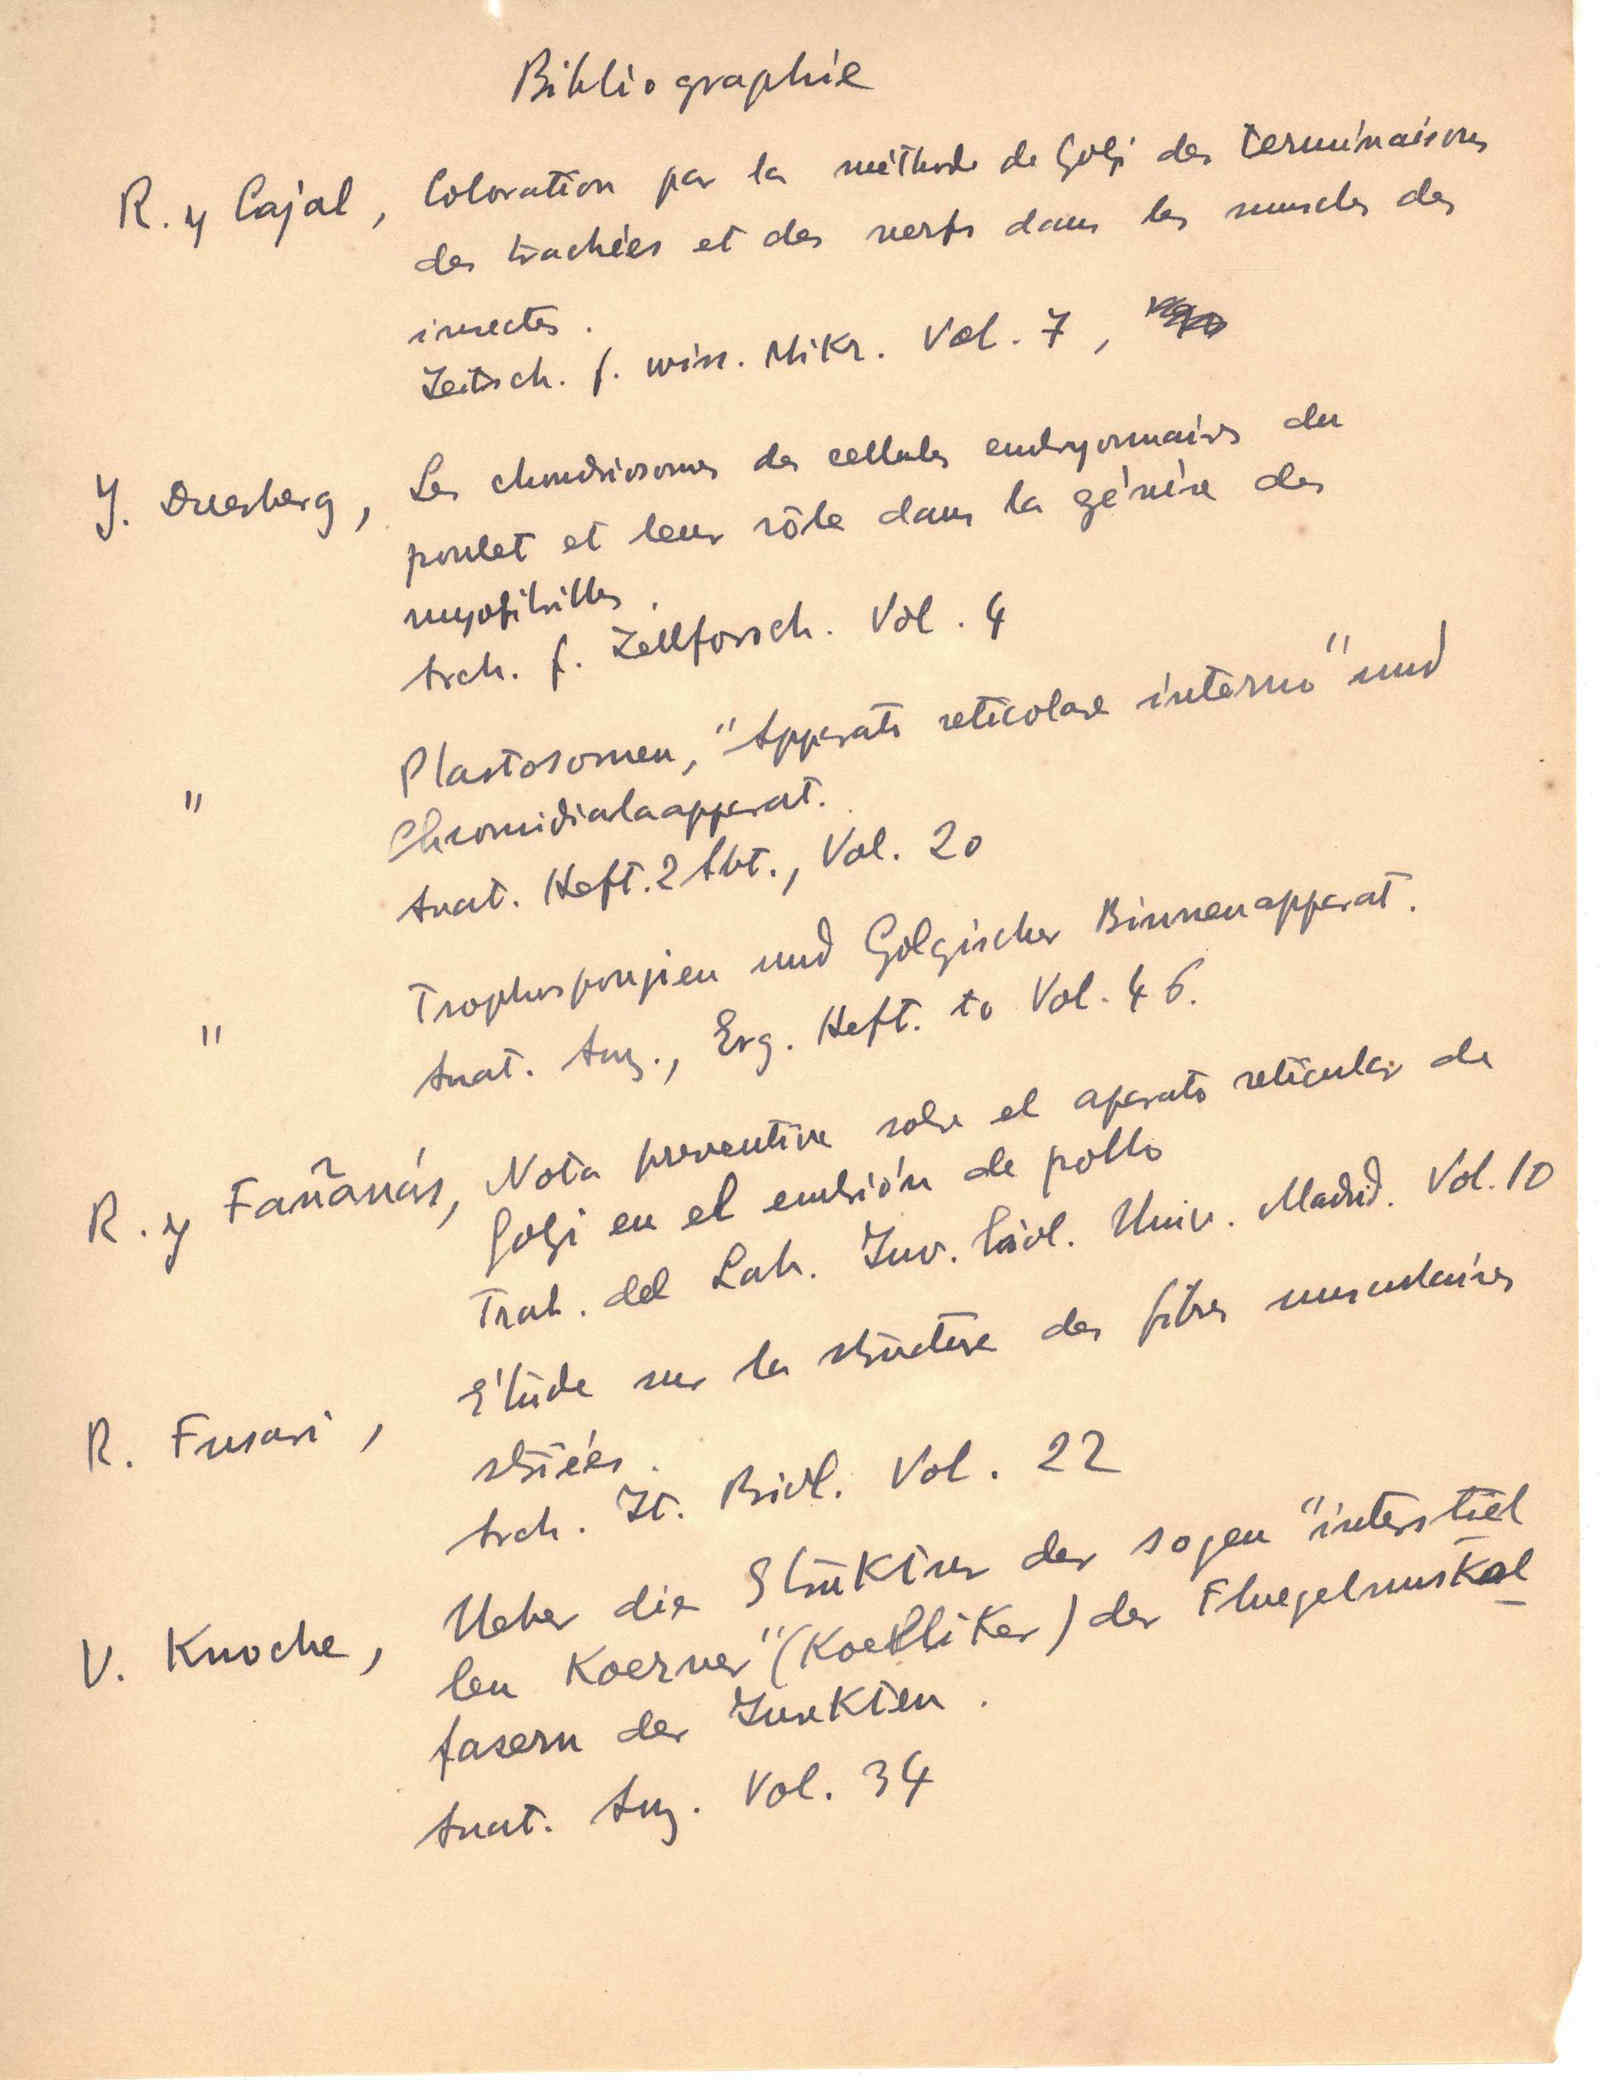 Bibliographie
R. y Cajal, Coloration par la méthode de Golgi des terminaisons
des trachées et des nerfs dans les muscles des
insectes.
Zeitsch. f. wiss. Mikr. Vol. 7,
J. Duesberg, Les chondriosomes des cellules embryonnaires du
poulet et leur rôle dans la génèse des
myofibrilles.
Arch. f. Zellforsch. Vol. 4
" Plastosomen, "Apparato reticolare interno" und
Chromidialaapparat.
Anat. Heft. 2 Abt., Vol. 20
" Trophospongien und Golgischer Binnenapparat.
Anat. Anz., Erg. Heft. to Vol. 46.
R. y Fañanás, Nota preventiva sobre el aparato reticular de
Golgi en el embrión de pollo
Trab. del Lab. Inv. Biol. Univ. Madrid. Vol. 10
R. Fusari, Étude sur la structure des fibres musculaires
striées.
Arch. It. Biol. Vol. 22
V. Knoche, Ueber die Struktur der sogen "interstiel
len Koerner" (Koelliker) der Fluegelmuskel
fasern der Insekten.
Anat. Anz. Vol. 34